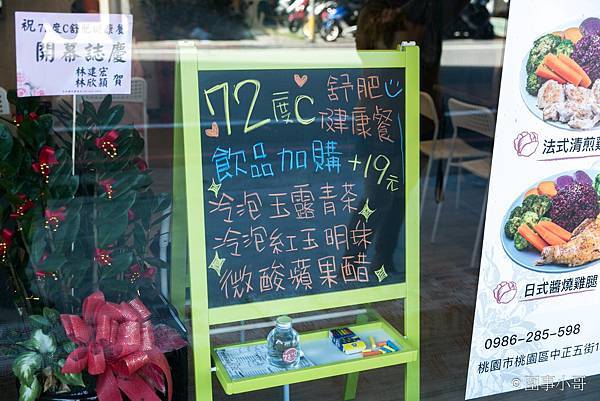 祝 7.度C舒肥健康餐
開幕誌慶
林建宏
林欣潁 賀
72度C 舒肥
健康餐
飲品加購+19元
冷泡玉露青茶
冷泡紅玉明珠
微酸蘋果醋
法式清煎雞
日式醬燒雞腿
0986-285-598
桃園市桃園區中正五街1
©国事小哥